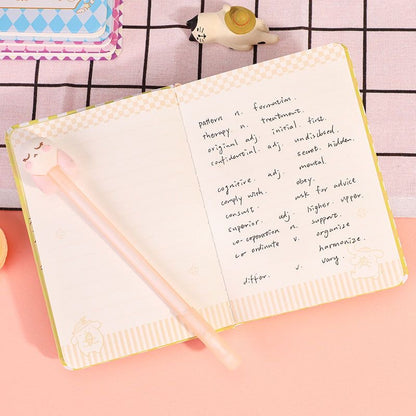 pattern n. formation.
therapy n. treatment.
original adj initial. first.
confidential. adj. undisclosed.
secret. hidden.
cognitive. adj. mental.
comply with. obey.
consult ask for advice
superior. adj. higher. upper.
co-coporation n. support.
co ordinate v. organize
harmonize.
differ. v. vary.